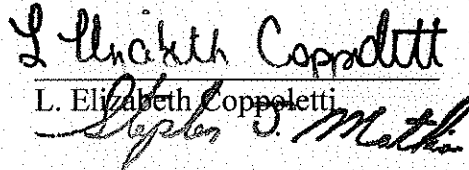 L Elizabeth Coppoletti
L. Elizabeth Coppoletti
Stephen J. Mathis